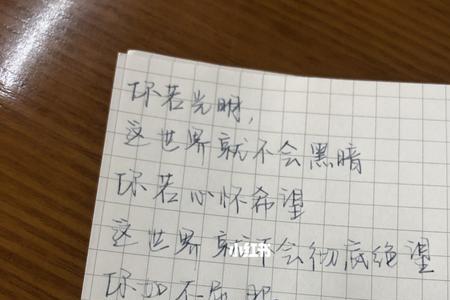 你若光明，
这世界就不会黑暗
你若心怀希望
这世界就不会彻底绝望
小红书
你如不屈服